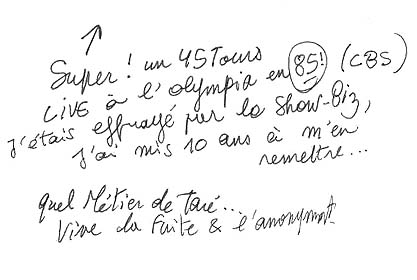 Super ! un 45 Tours
LiVE à l'olympia en 85! (CBS)
J'étais effrayé par le Show-Biz,
J'ai mis 10 ans à m'en
remettre...
quel Métier de Taré...
Vive la Fuite & l'anonymat